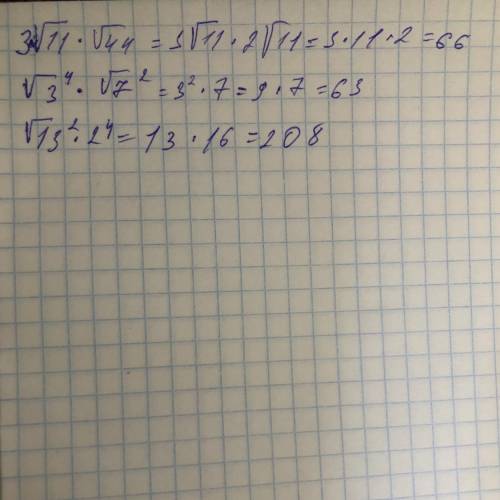 3√11 · √44 = 3√11 · 2√11 = 3 · 11 · 2 = 66
√3⁴ · √7² = 3² · 7 = 9 · 7 = 63
√13² · 2⁴ = 13 · 16 = 208